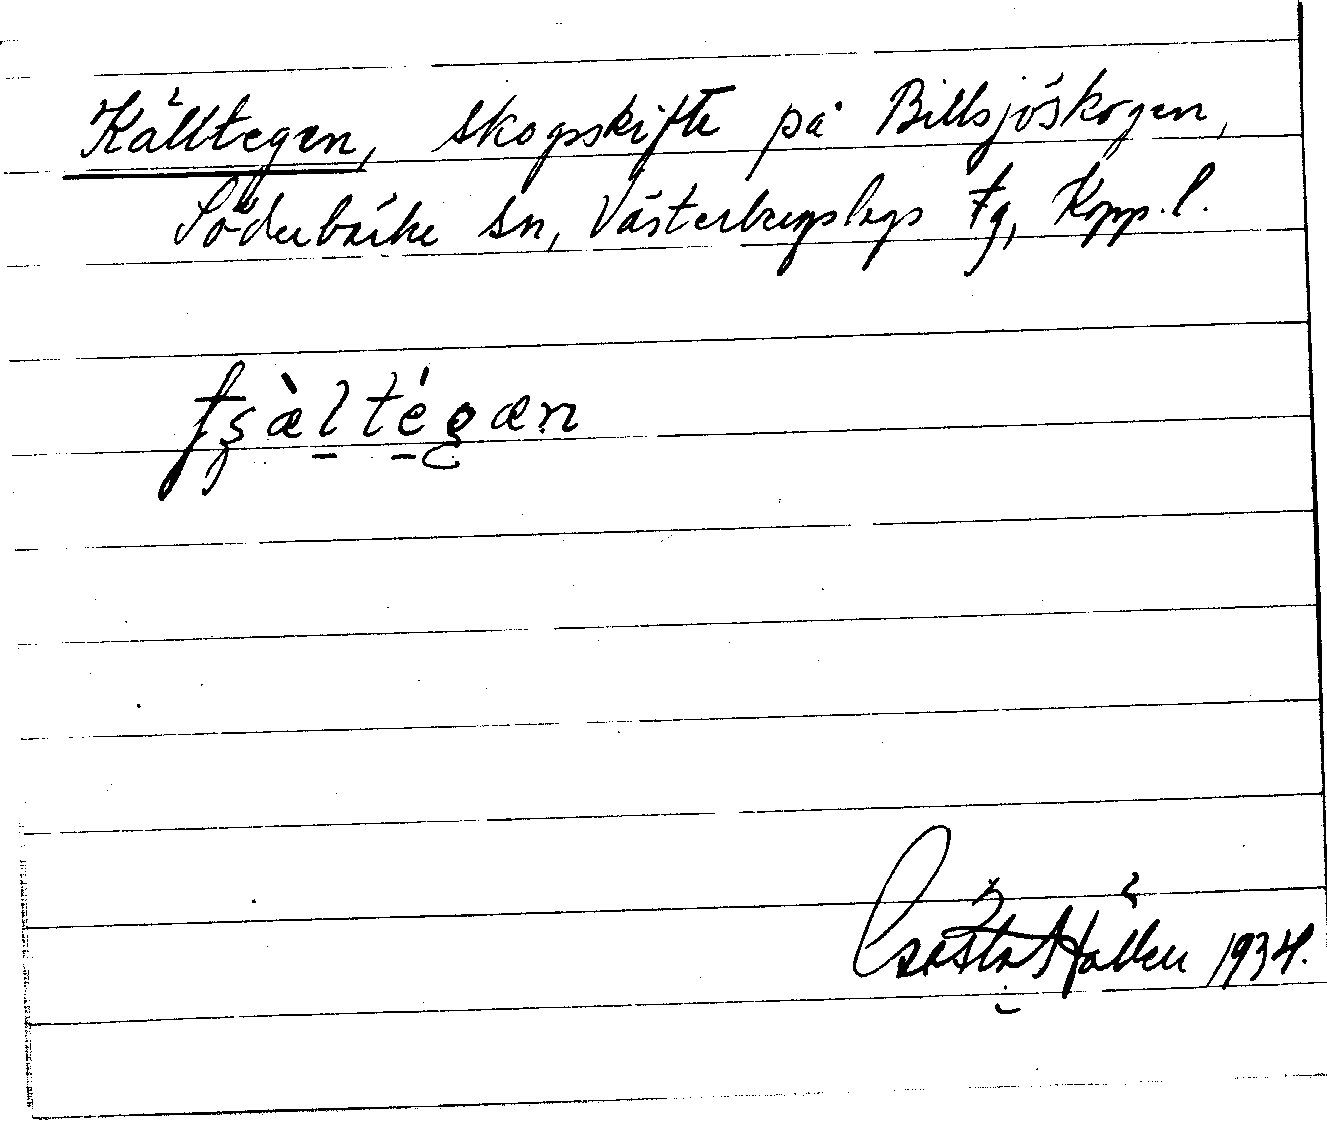 Källtegen, skogsskifte på Billsjöskogen,
Söderbärke sn, Västerbergslags fg, Kopp. l.
tʂæ̀ltégæn
Gösta Hállen 1934.